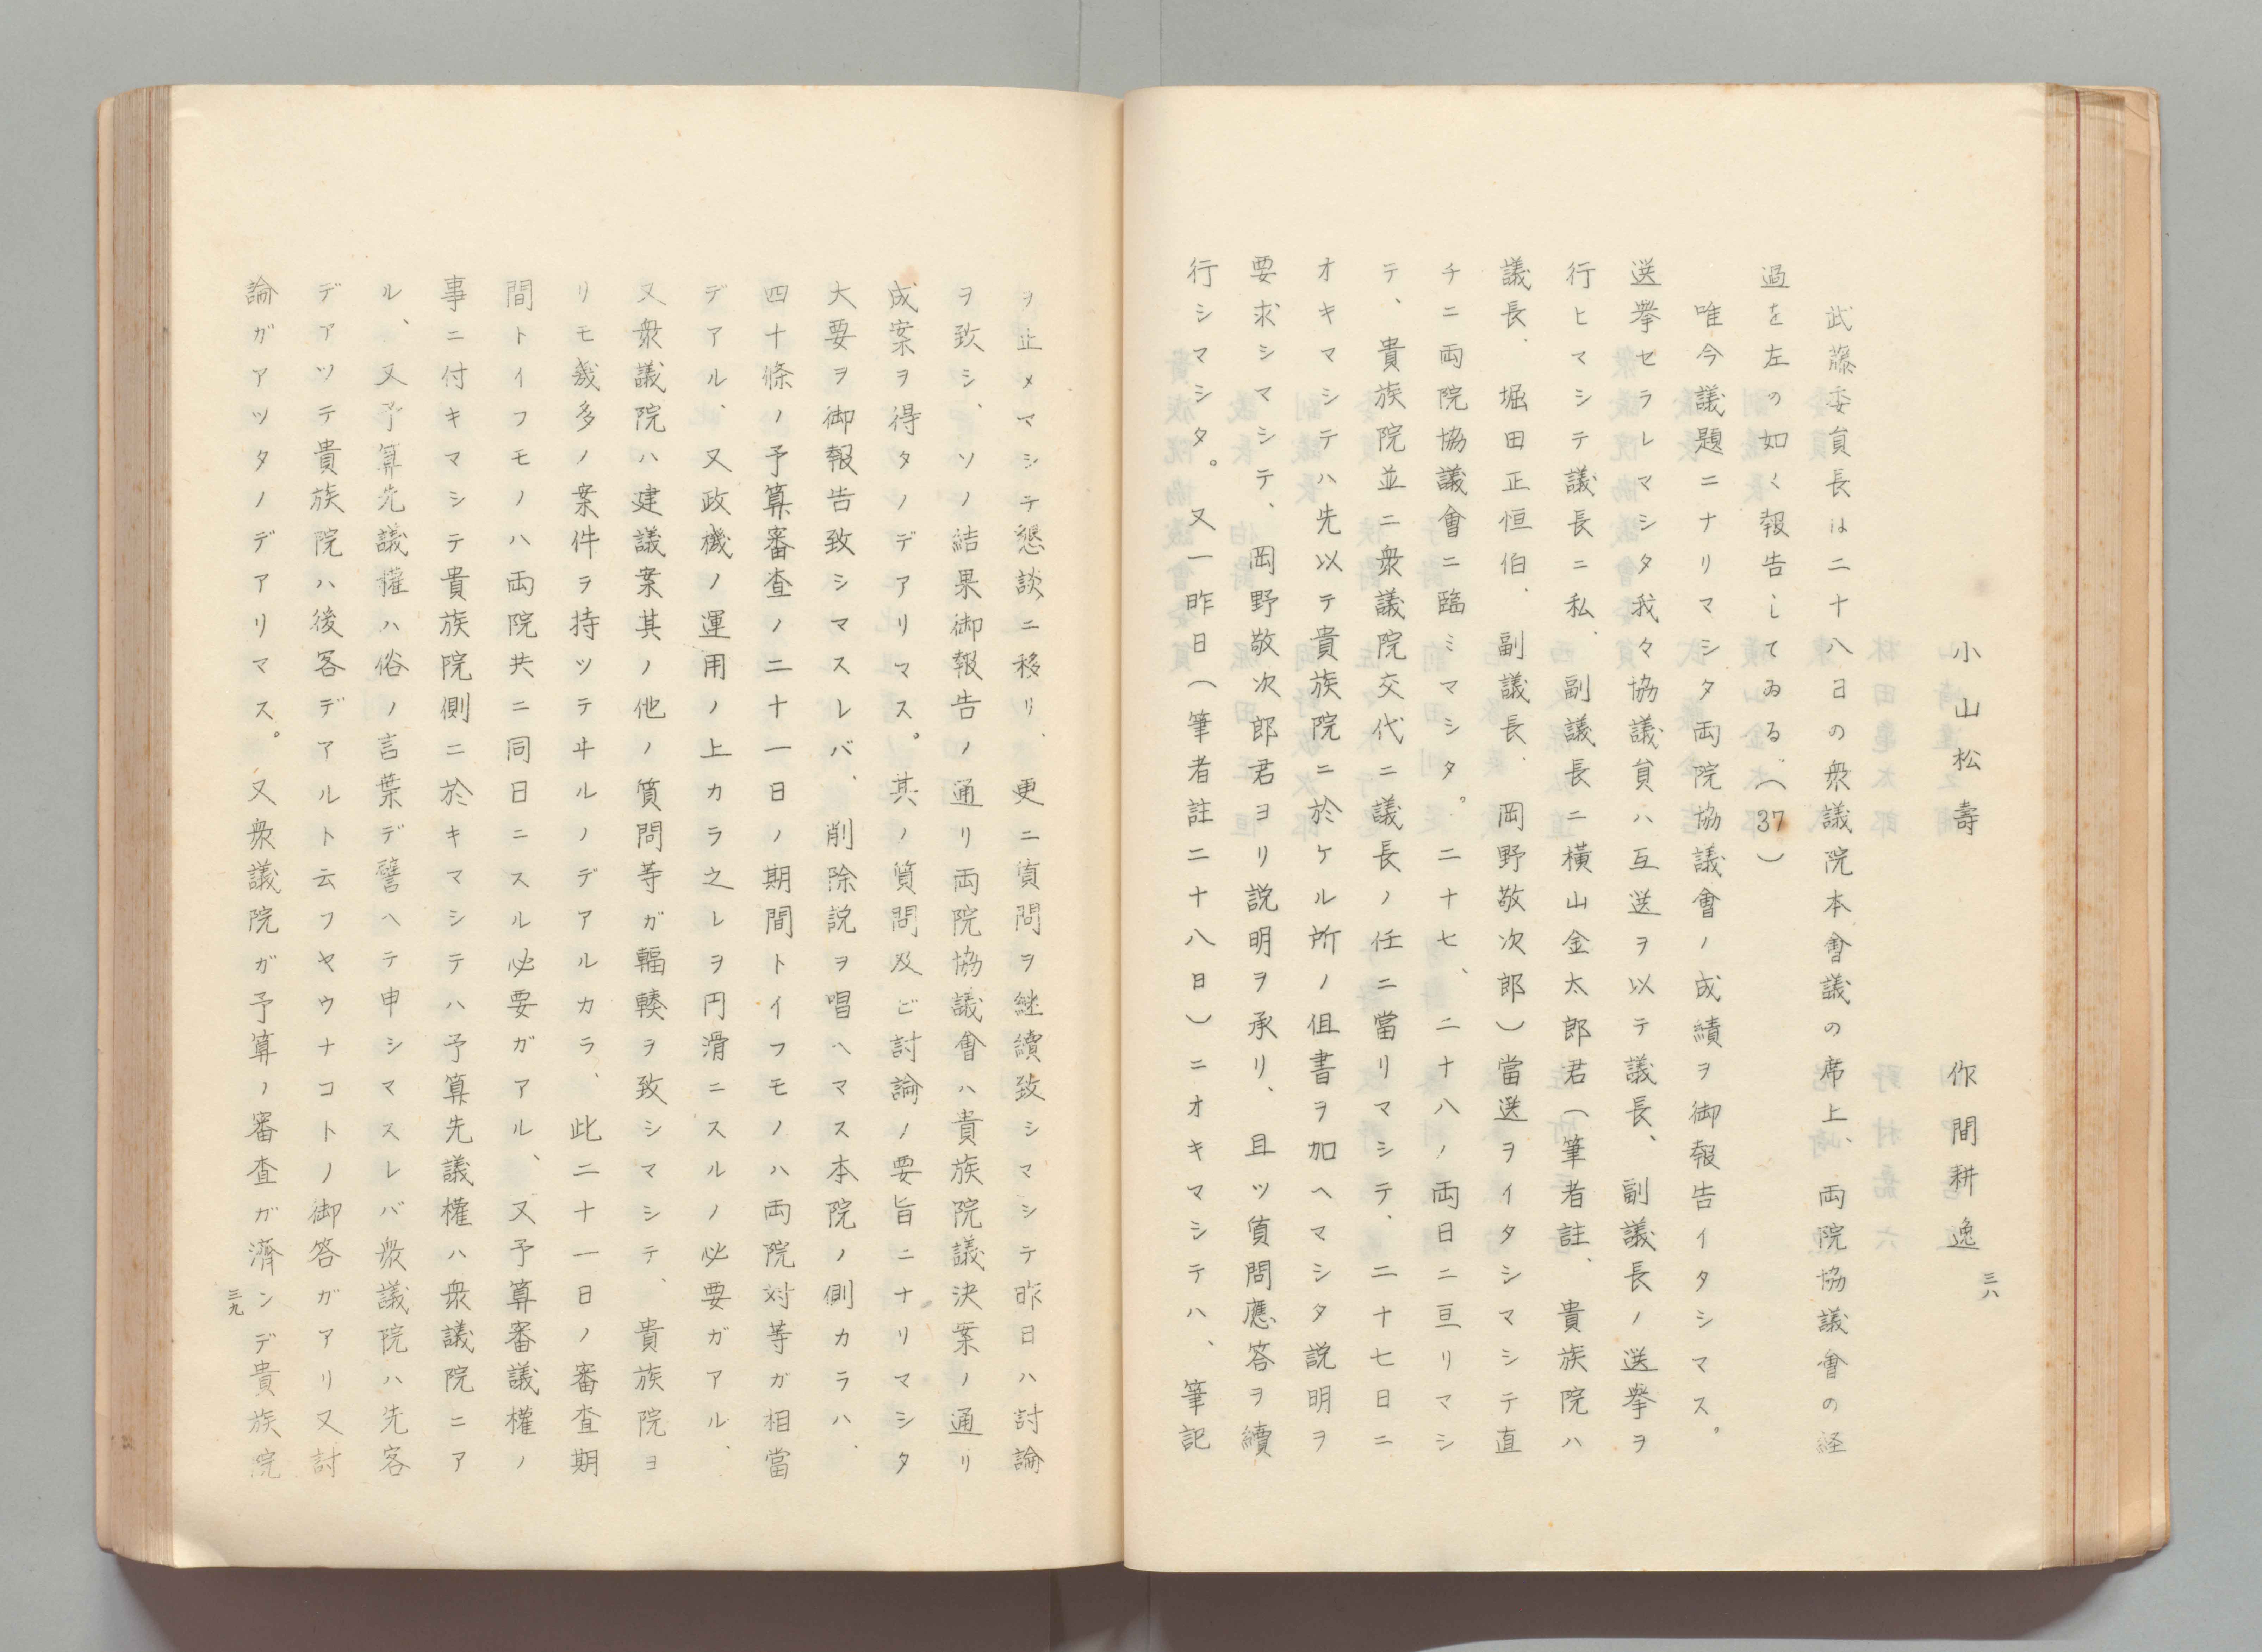 小山松壽　作間耕逸
三八
武藤委員長は二十八日の衆議院本會議の席上、両院協議會の経
過を左の如く報告してゐる。(37)
唯今議題ニナリマシタ両院協議會ノ成績ヲ御報告イタシマス。
送挙セラレマシタ我々協議員ハ互送ヲ以テ議長、副議長ノ送挙ヲ
行ヒマシテ議長ニ私、副議長ニ横山金太郎君(筆者註、貴族院ハ
議長、堀田正恒伯、副議長、岡野敬次郎)當送ヲイタシマシテ直
チニ両院協議會ニ臨ミマシタ。二十七、二十八ノ両日ニ亘リマシ
テ、貴族院並ニ衆議院交代ニ議長ノ任ニ當リマシテ、二十七日ニ
オキマシテハ先以テ貴族院ニ於ケル所ノ但書ヲ加ヘマシタ説明ヲ
要求シマシテ、岡野敬次郎君ヨリ説明ヲ承リ、且ツ質問應答ヲ續
行シマシタ。又一昨日(筆者註二十八日)ニオキマシテハ、筆記
ヲ止メマシテ懇談ニ移リ、更ニ質問ヲ継續致シマシテ昨日ハ討論
ヲ致シ、ソノ結果御報告ノ通リ両院協議會ハ貴族院議決案ノ通リ
成案ヲ得タノデアリマス。其ノ質問及ビ討論ノ要旨ニナリマシタ
大要ヲ御報告致シマスレバ、削除説ヲ唱ヘマス本院ノ側カラハ、
四十條ノ予算審査ノ二十一日ノ期間トイフモノハ両院対等ガ相當
デアル、又政機ノ運用ノ上カラ之レヲ円滑ニスルノ必要ガアル、
又衆議院ハ建議案其ノ他ノ質問等ガ輻輳ヲ致シマシテ、貴族院ヨ
リモ幾多ノ案件ヲ持ツテヰルノデアルカラ、此二十一日ノ審査期
間トイフモノハ両院共ニ同日ニスル必要ガアル、又予算審議權ノ
事ニ付キマシテ貴族院側ニ於キマシテハ予算先議權ハ衆議院ニア
ル、又予算先議權ハ俗ノ言葉デ譬ヘテ申シマスレバ衆議院ハ先客
デアツテ貴族院ハ後客デアルト云フヤウナコトノ御答ガアリ又討
論ガアツタノデアリマス。又衆議院ガ予算ノ審査ガ濟ンデ貴族院
三九